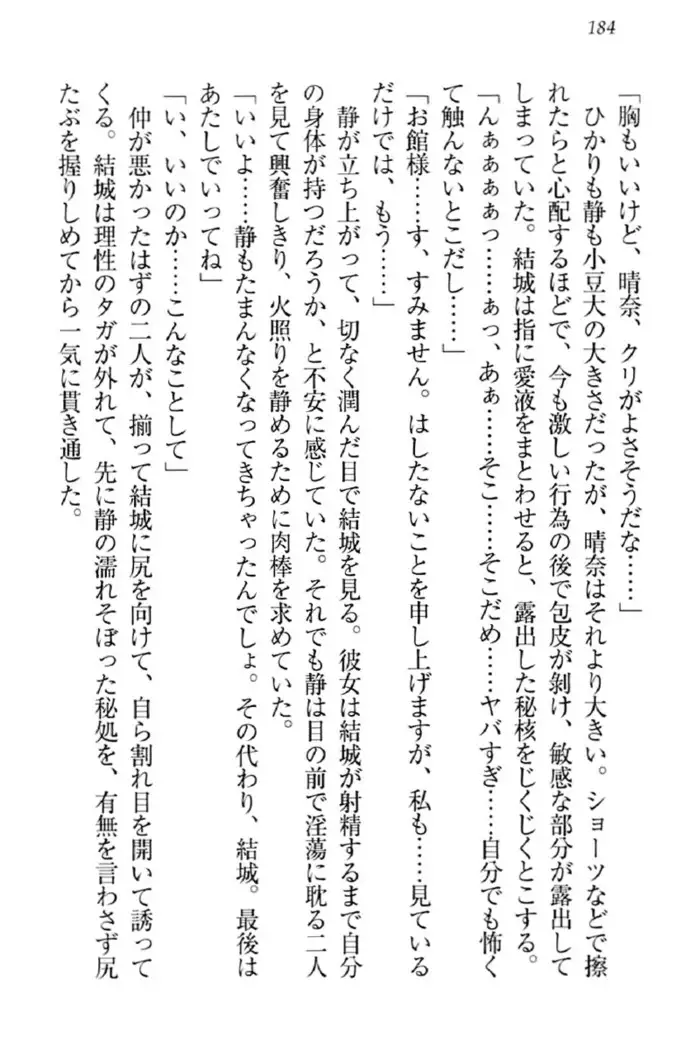 184
「胸もいいけど、晴奈、クリがよさそうだな……」
　ひかりも静も小豆大の大きさだったが、晴奈はそれより大きい。ショーツなどで擦
れたらと心配するほどで、今も激しい行為の後で包皮が剥け、敏感な部分が露出して
しまっていた。結城は指に愛液をまとわせると、露出した秘核をじくじくとこする。
「んぁぁぁぁっ……ぁっ、あぁ……そこ……そこだめ……ヤバすぎ……自分でも怖く
て触んないとこだし……」
「お館様……す、すみません。はしたないことを申し上げますが、私も……見ている
だけでは、もう……」
　静が立ち上がって、切なく潤んだ目で結城を見る。彼女は結城が射精するまで自分
の身体が持つだろうか、と不安に感じていた。それでも静は目の前で淫蕩に耽る二人
を見て興奮しきり、火照りを静めるために肉棒を求めていた。
「いいよ……静もたまんなくなってきちゃったんでしょ。その代わり、結城。最後は
あたしでいってね」
「い、いいのか……こんなことして」
　仲が悪かったはずの二人が、揃って結城に尻を向けて、自ら割れ目を開いて誘って
くる。結城は理性のタガが外れて、先に静の濡れそぼった秘処を、有無を言わさず尻
たぶを握りしめてから一気に貫き通した。